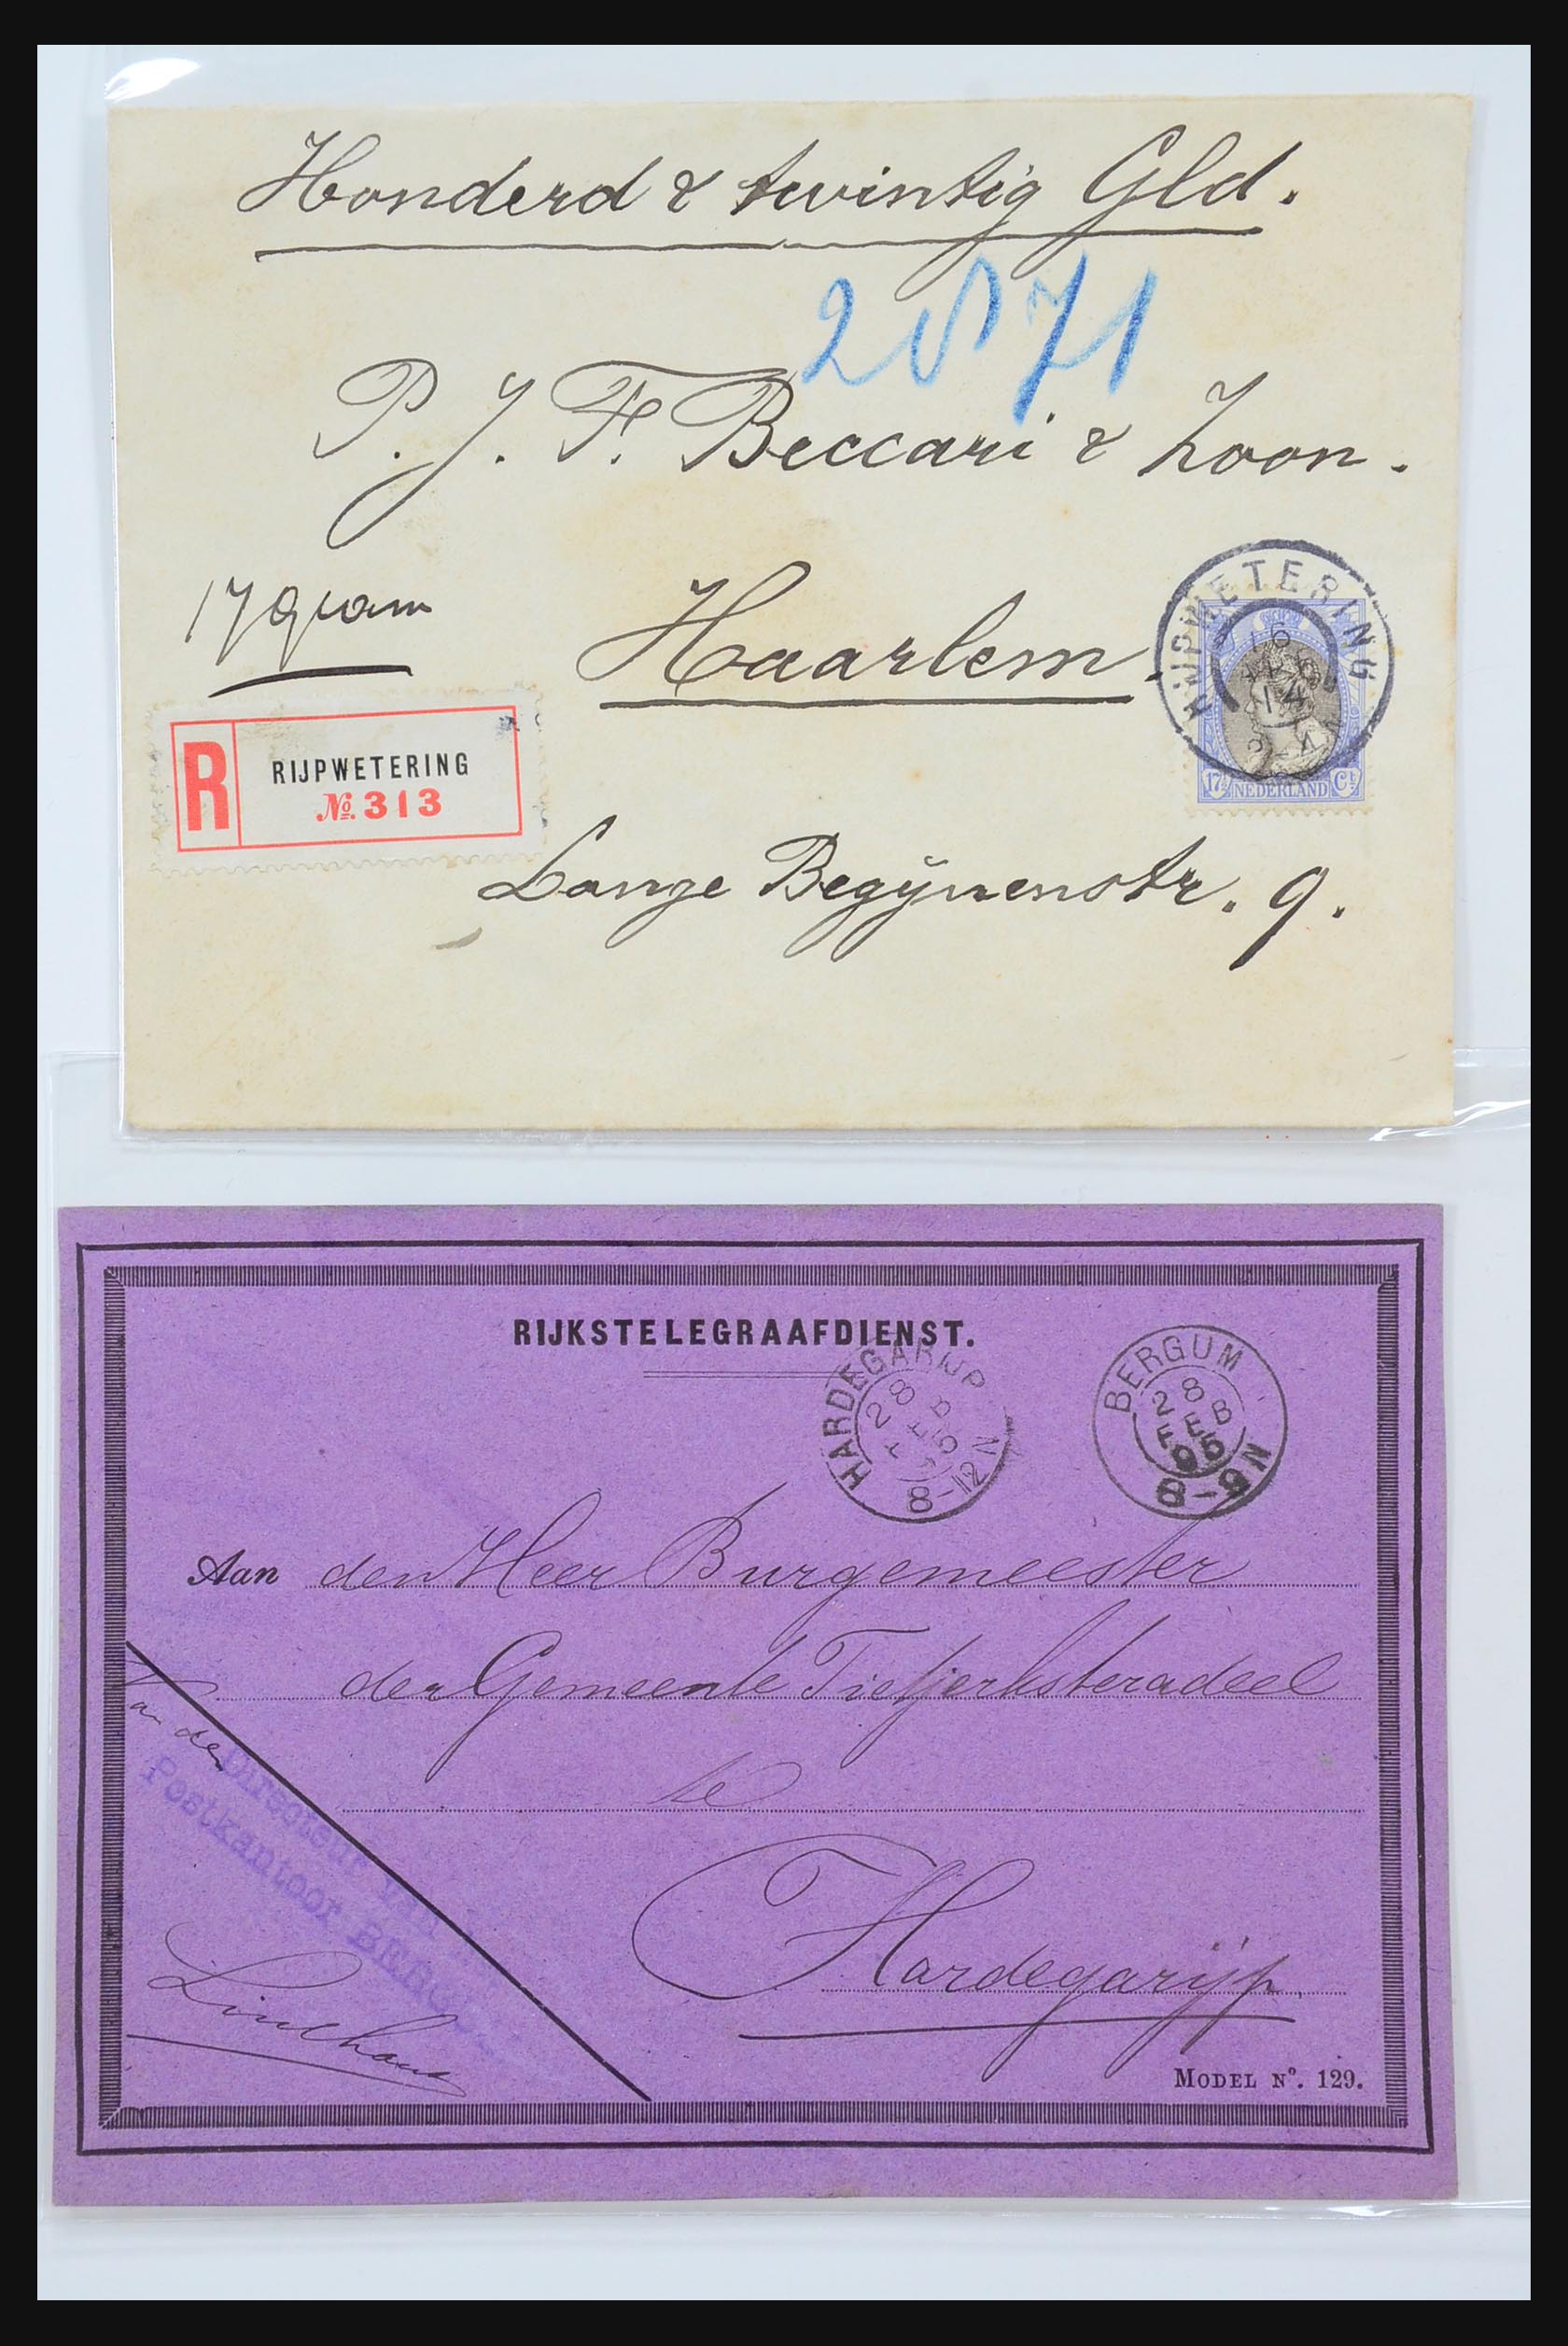 Honderd & twintig Gld.
2571
P. J. F. Beccari & Zoon.
17 gram
Haarlem.
RIJPWETERING
16
14
R
RIJPWETERING
№ 313
17½ NEDERLAND Ct
Lange Begijnenstr. 9.
RIJKSTELEGRAAFDIENST.
HARDEGARIJP
28
FEB
95
8-12N
BERGUM
28
FEB
95
8-9N
Aan den Heer Burgemeester
der Gemeente Tietjerksteradeel
te
Hardegarijp
Van den
Directeur van
Postkantoor
MODEL Nº. 129.